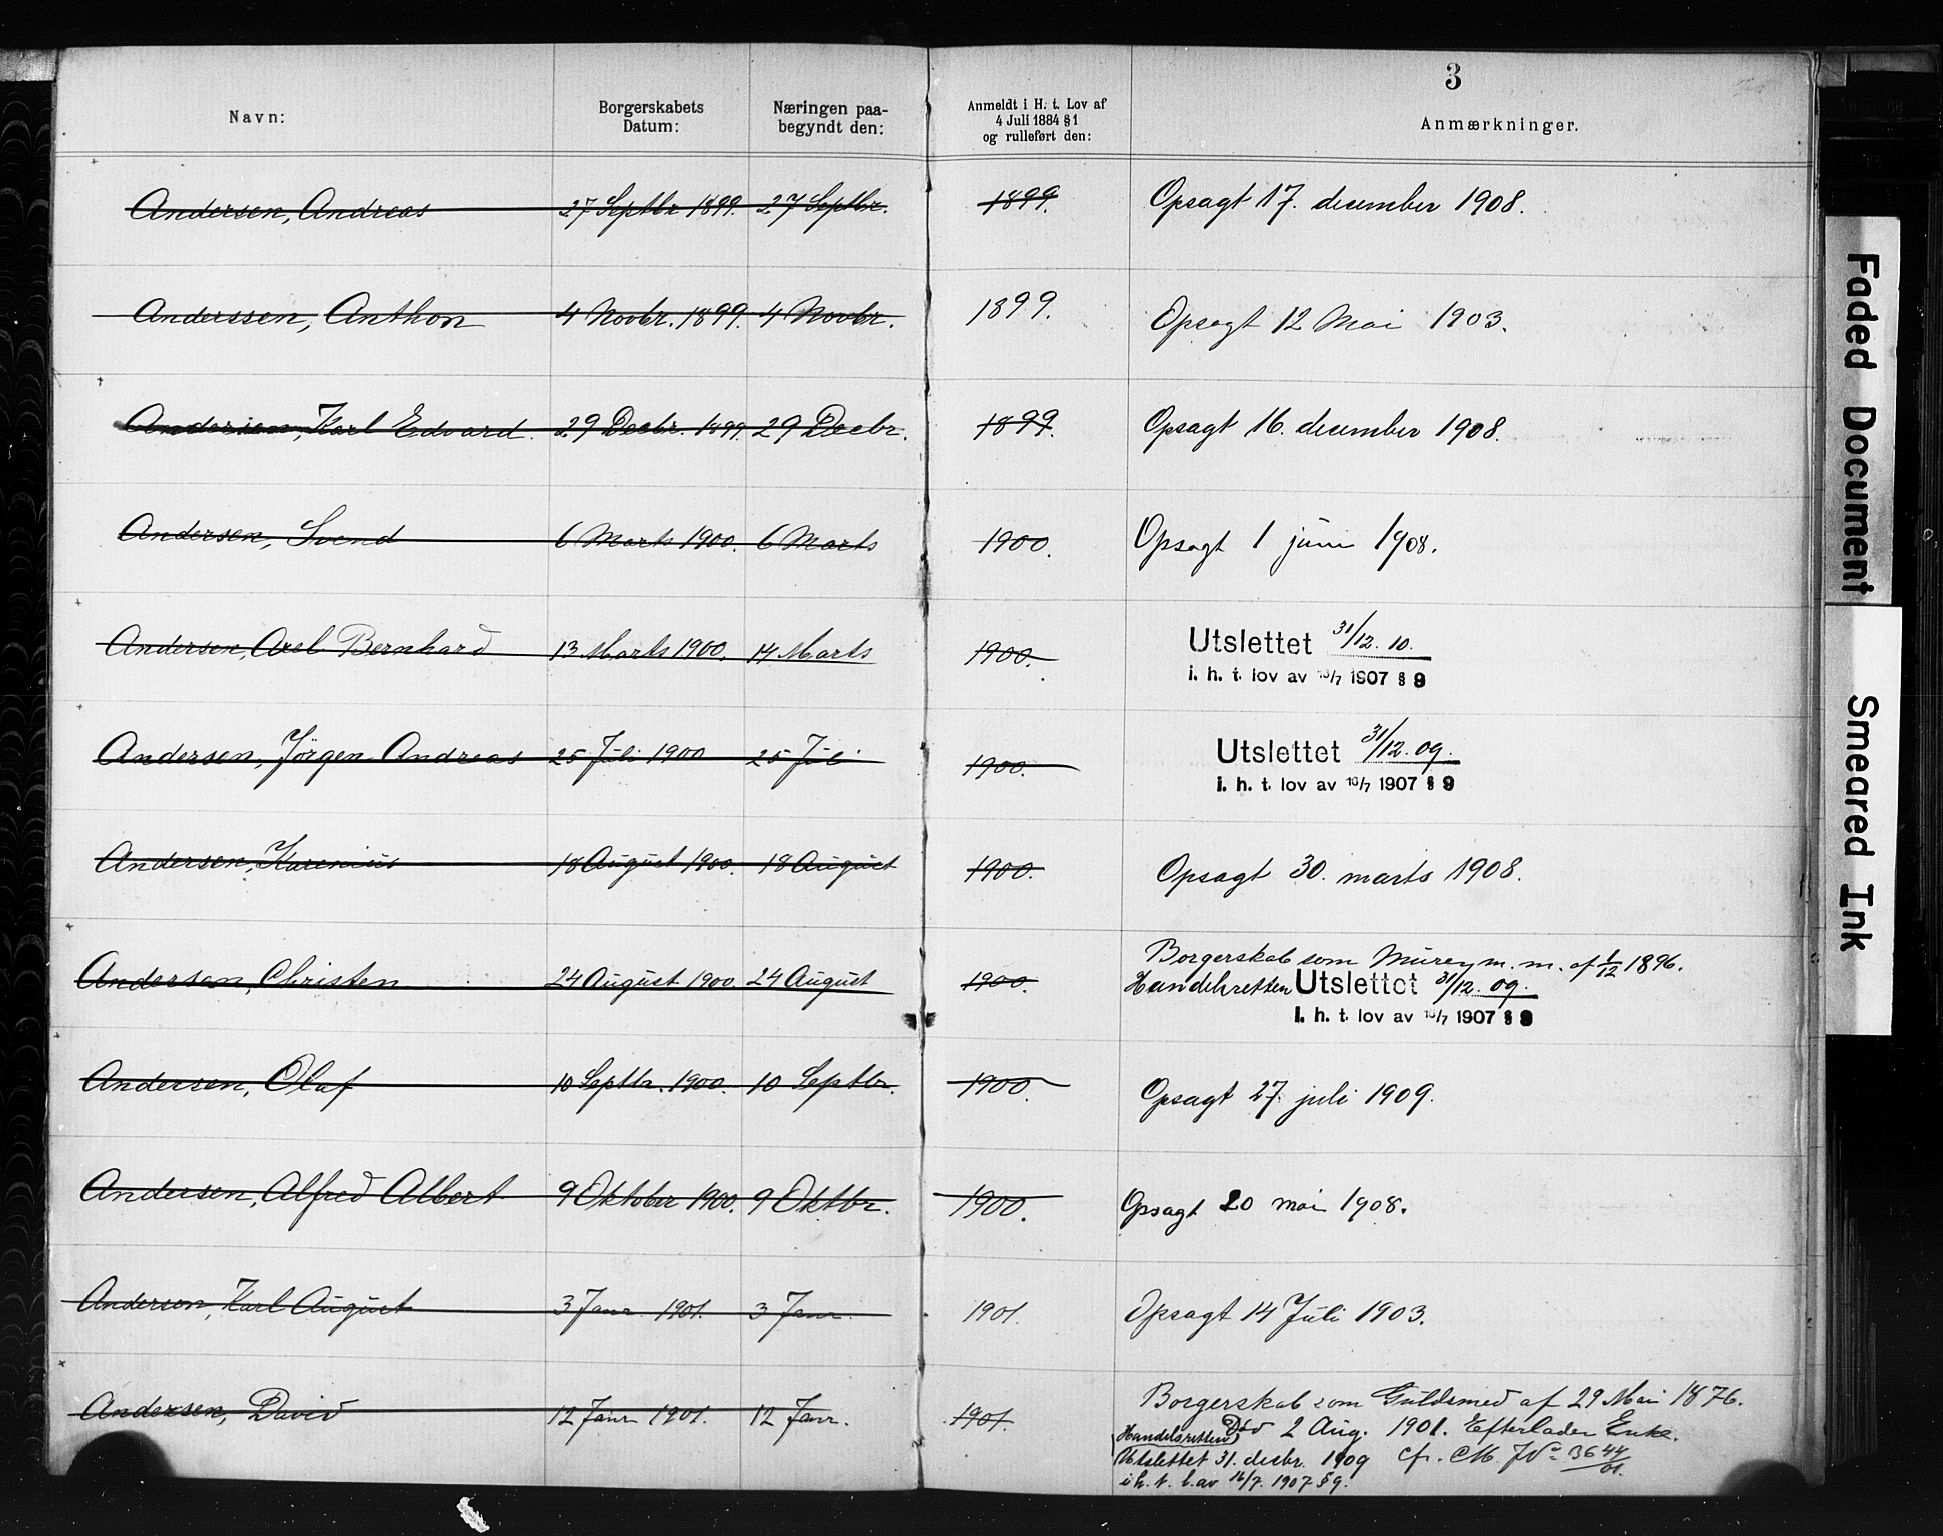 3
Navn:
Borgerskabets Datum:
Næringen paabegyndt den:
Anmeldt i H. t. Lov af 4 Juli 1884 § 1 og rulleført den:
Anmærkninger.
Andersen, Andreas 27 Septbr 1899. 27 Septbr. 1899. Opsagt 17. desember 1908.
Anderssen, Anthon 4 Novbr. 1899. 4 Novbr. 1899. Opsagt 12 Mai 1903.
Andersen, Karl Edvard. 29 Decbr. 1899. 29 Decbr. 1899. Opsagt 16. desember 1908.
Andersen, Svend 6 Marts 1900. 6 Marts 1900. Opsagt 1 juni 1908.
Andersen, Axel Bernhard 13 Marts 1900. 14 Marts 1900. Utslettet 31/12. 10.
i. h. t. lov av 16/7 1907 § 9
Andersen, Jörgen Andreas 25 Juli 1900 25 Juli 1900. Utslettet 31/12. 09.
i. h. t. lov av 16/7 1907 § 9
Andersen, Karenius 18 August 1900. 18 August 1900. Opsagt 30. marts 1908.
Andersen, Christen 24 August 1900. 24 August 1900. Borgerskab som Murer m. m. af 1/12 1896.
Handelsretten Utslettet 31/12. 09.
i. h. t. lov av 16/7 1907 § 9
Andersen, Olaf 10 Septbr. 1900. 10 Septbr. 1900. Opsagt 27. juli 1909.
Andersen, Alfred Albert 9 Oktober 1900. 9 Oktbr. 1900. Opsagt 20 mai 1908.
Andersen, Karl August 3 Janr 1901. 3 Janr. 1901. Opsagt 14 Juli 1903.
Andersen, David 12 Janr 1901. 12 Janr. 1901. Borgerskab som Guldsmed af 29 Mai 1876.
Död 2 Aug. 1901. Efterlader Enke.
Handelsretten
Utslettet 31. desbr. 1909 cfr. M. J No 3644/01.
i h. t. l. av 16/7. 1907 § 9.
Faded Document
Smeared Ink